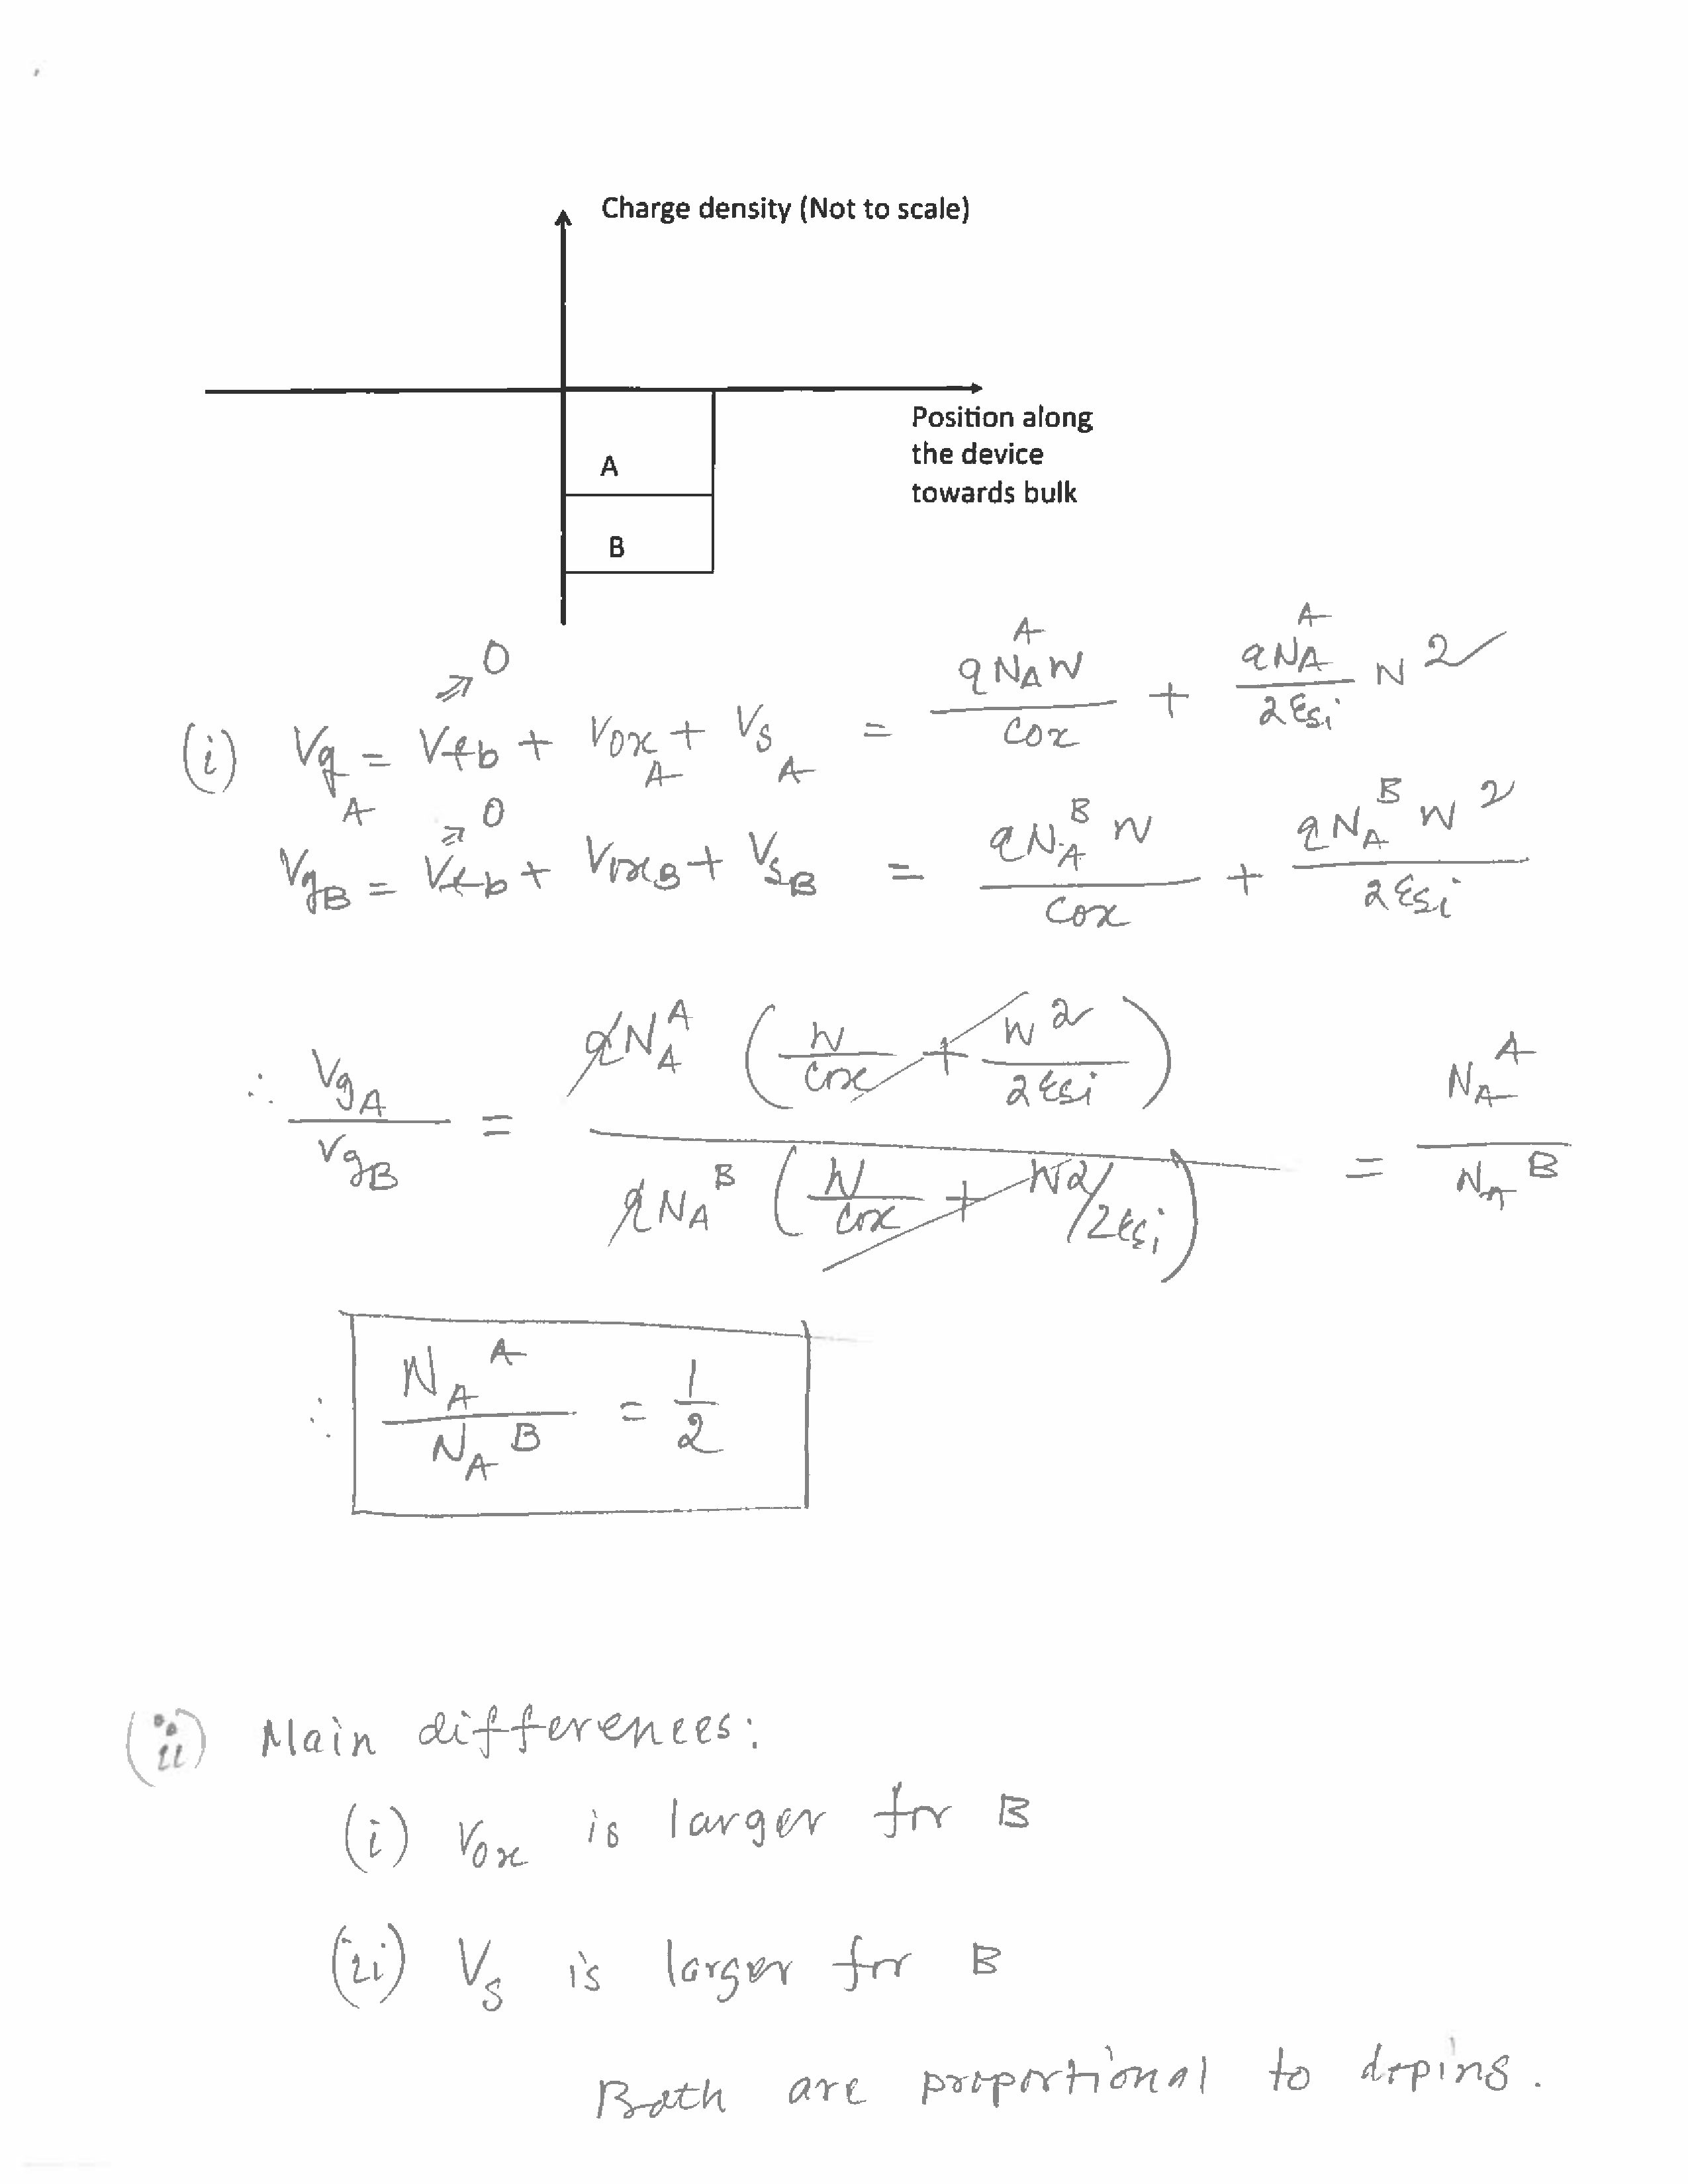 Charge density (Not to scale)
Position along
the device
towards bulk
A
B
(i) V_{gA} = V_{fb}↗0 + V_{oxA} + V_{sA} = \frac{qN_A^A W}{Cox} + \frac{qN_A^A}{2εsi} W^2
V_{gB} = V_{fb}↗0 + V_{oxB} + V_{sB} = \frac{qN_A^B W}{Cox} + \frac{qN_A^B W^2}{2εsi}
∴ \frac{V_{gA}}{V_{gB}} = \frac{qN_A^A (\frac{W}{Cox} + \frac{W^2}{2εsi})}{qN_A^B (\frac{W}{Cox} + W^2/2εsi)} = \frac{N_A^A}{N_A^B}
∴ \frac{N_A^A}{N_A^B} = \frac{1}{2}
(ii) Main differences:
(i) Vox is larger for B
(ii) Vs is larger for B
Both are proportional to doping.